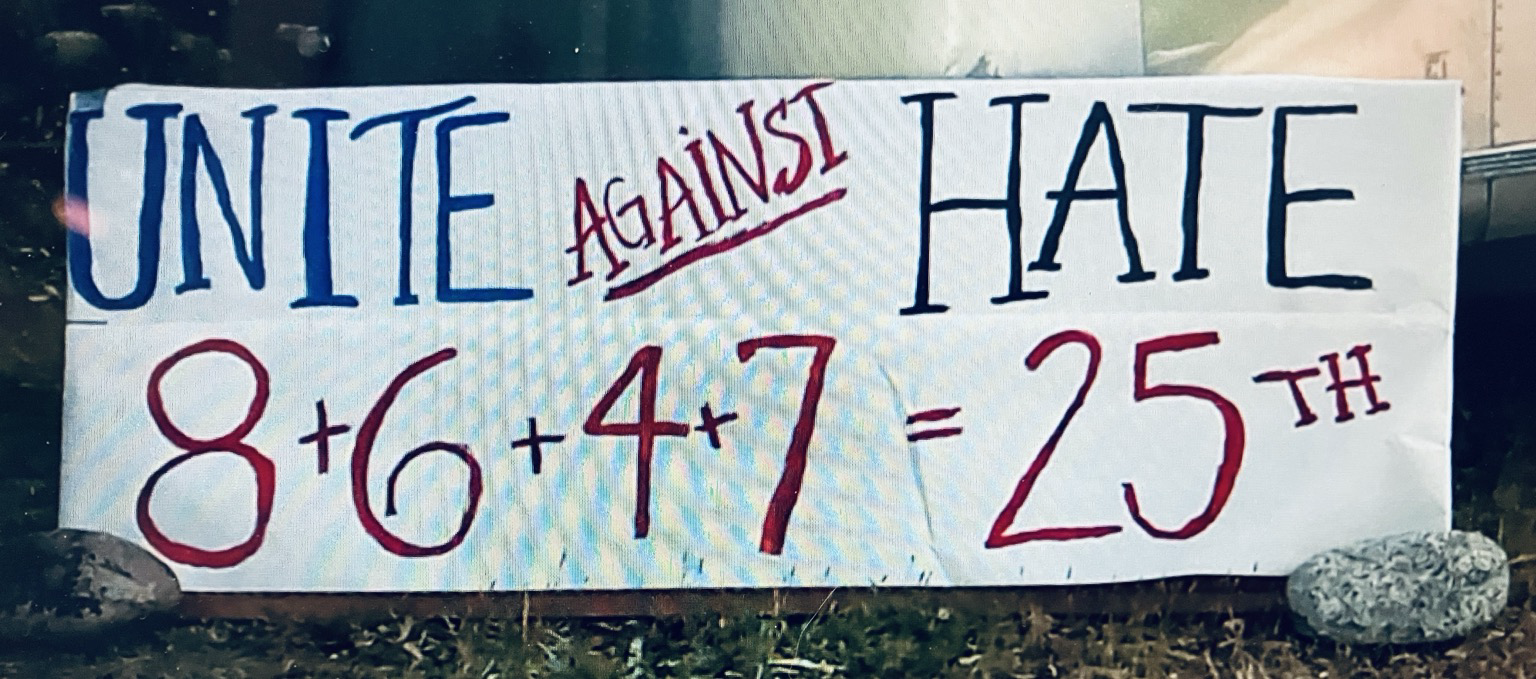 UNITE AGAINST HATE
8+6+4+7=25TH